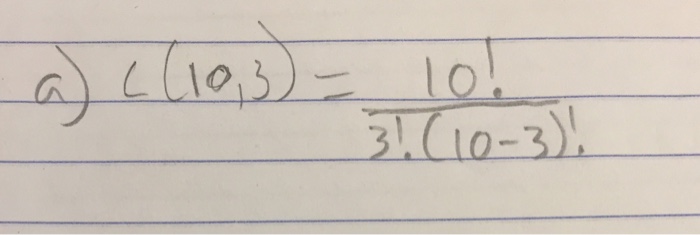 a) C(10,3) = 10!
3!(10-3)!